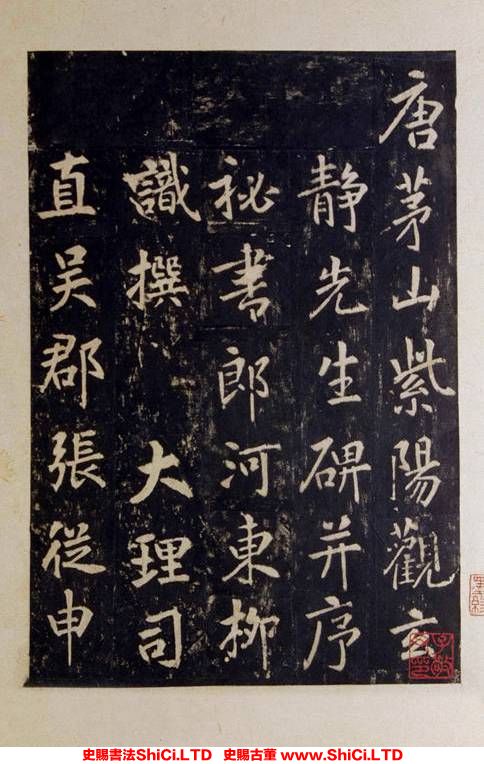 唐茅山紫陽觀玄
静先生碑并序
祕書郎河東柳
識撰 大理司
直吴郡張從申
史賜書法ShiCi.LTD 史賜古董 www.ShiCi.LTD